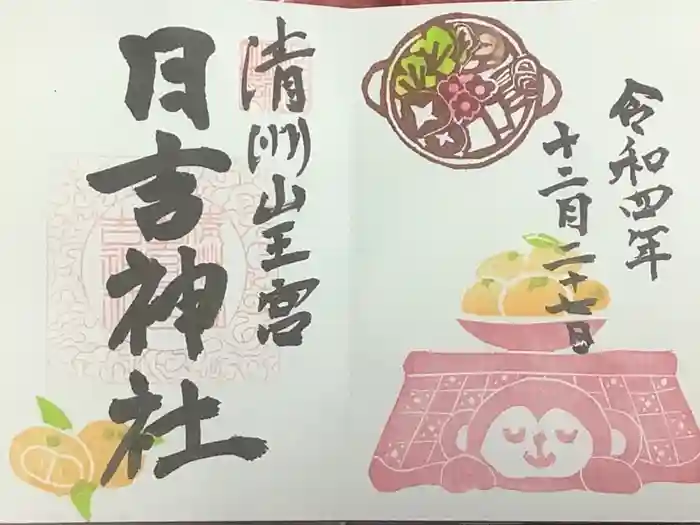 令和四年
十二月二十七日
清洲山王宮
日吉神社